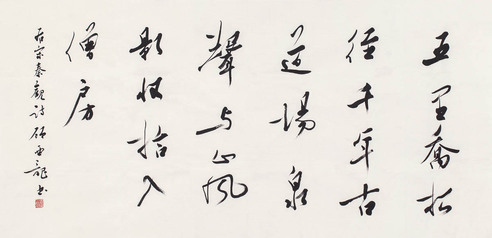 五里喬松
徑千年古
道場泉
聲与嵐
影收拾入
僧房
右宋秦觀詩顾亚龍书